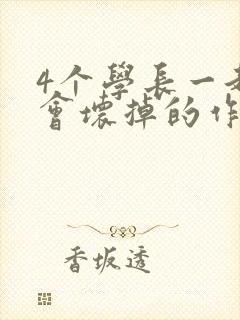 4个學長一起
會壞掉的作
香坂透